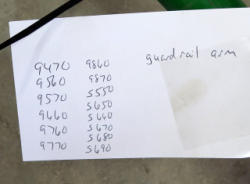 9470 9860 guardrail arm
9560 9870
9570 5550
9660 5650
9760 5660
9770 5670
5680
5690